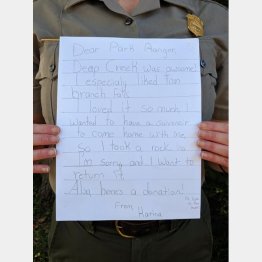 Dear Park Ranger,
Deep Creek was awsome!
I especially liked Tom
branch Falls.
I loved it so much I
wanted to have a souvinir
to come home with me,
so I took a rock.
I'm sorry and I want to
return it.
Also heres a donation!
From,
Karina